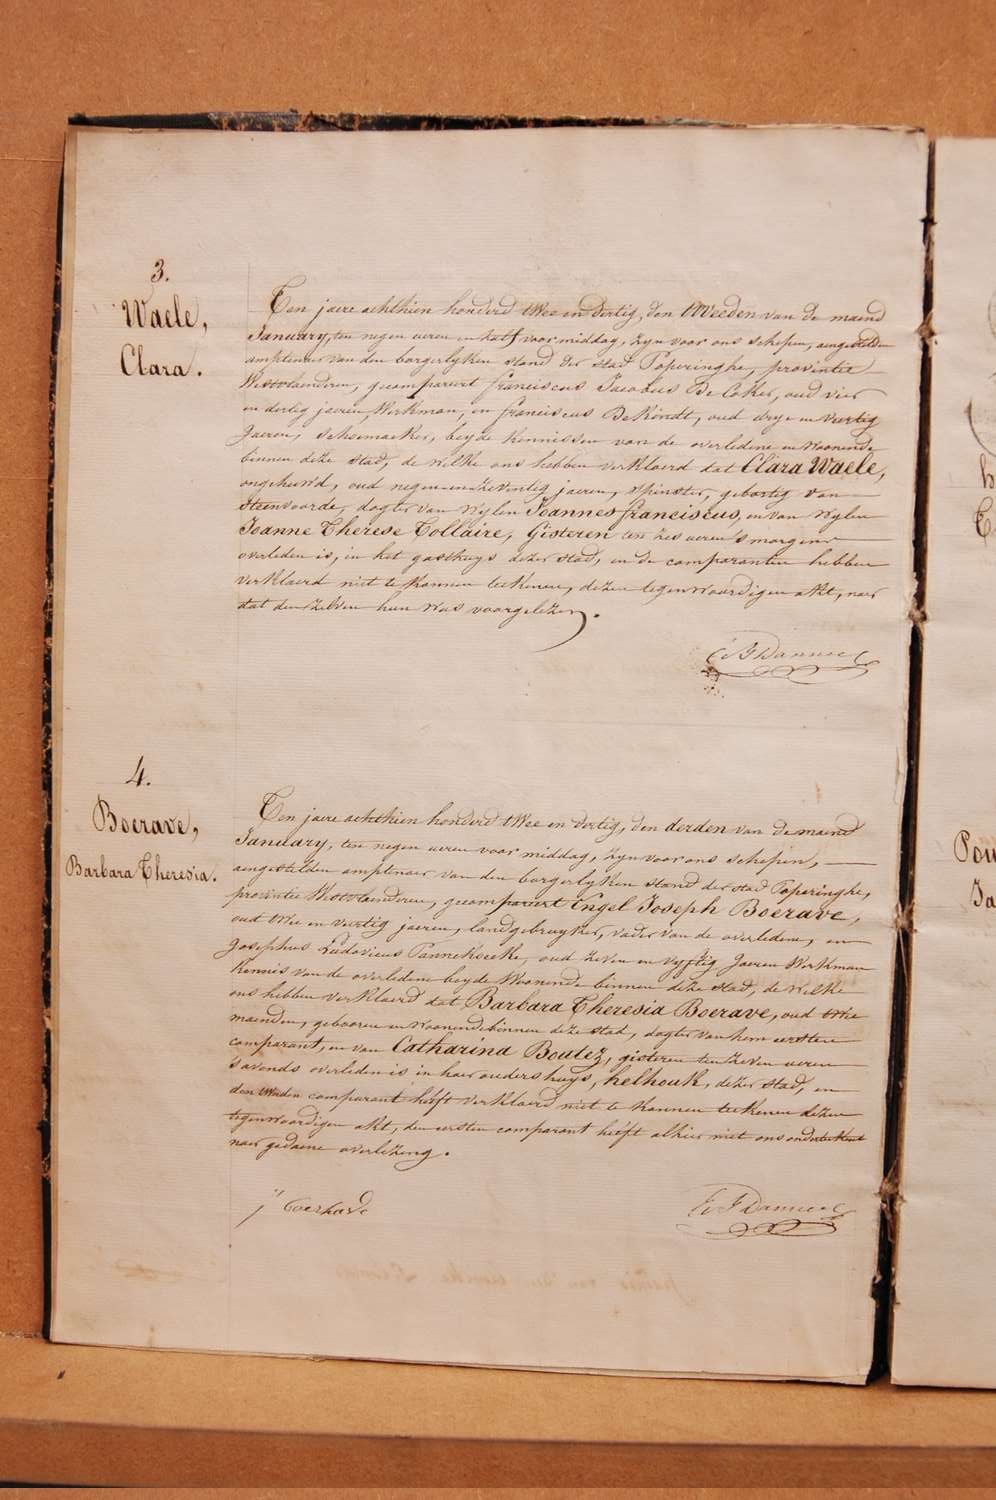 3.
Waele,
Clara.
Ten jaere achthien honderd twee en dertig, den tweeden van de maend
January, ten negen ueren en half voor middag, zyn voor ons schepen, aengestelden
amptenaer van den borgerlyken stand der stad Poperinghe, provintie
Westvlaenderen, gecompareert franciscus Jacobus De Coker, oud vier
en dertig jaeren, Werkman, en franciscus DeKindt, oud dry en veertig
Jaeren, schoemaeker, beyde kennissen van de overledene en woonende
binnen deze stad, de welke ons hebben verklaerd dat Clara Waele,
ongehuwd, oud negen-en-zeventig jaeren, spinster, gebortig van
Steenvoorde, dogter van wylen Joannes franciscus, en van wylen
Joanne Therese Tollaire, Gisteren ten zes ueren smorgens
overleden is, in het gasthuys dezer stad, en de comparanten hebben
verklaerd niet te konnen teekenen, dezen tegenwoordigen akt, naer
dat den zelven hun was voorgelezen.
4.
Boerave,
Barbara Theresia.
Ten jaere achthien honderd twee en dertig, den derden van de maend
January, ten negen ueren voor middag, zyn voor ons schepen,
aengestelden amptenaer van den borgerlyken stand der stad Poperinghe,
provintie Westvlaenderen, gecompareert Engel Joseph Boerave,
oud twee en veertig jaeren, landgebruyker, vader van de overledene, en
Josephus Ludovicus Pannekoecke, oud zeven en vyftig Jaeren Werkman
kennis van de overledene beyde Woonende binnen deze stad, de welke
ons hebben verklaerd dat Barbara Theresia Boerave, oud twee
maenden, gebooren en woonende binnen deze stad, dogter van hem eersten
comparant, en van Catharina Boutez, gisteren ten zeven ueren
's avonds overleden is in haer ouders huys, helhouk, dezer stad, en
den tweeden comparant heeft verklaerd niet te konnen teekenen dezen
tegenwoordigen akt, den eersten comparant heeft alhier met ons onderteekent
naer gedaene overlezing.